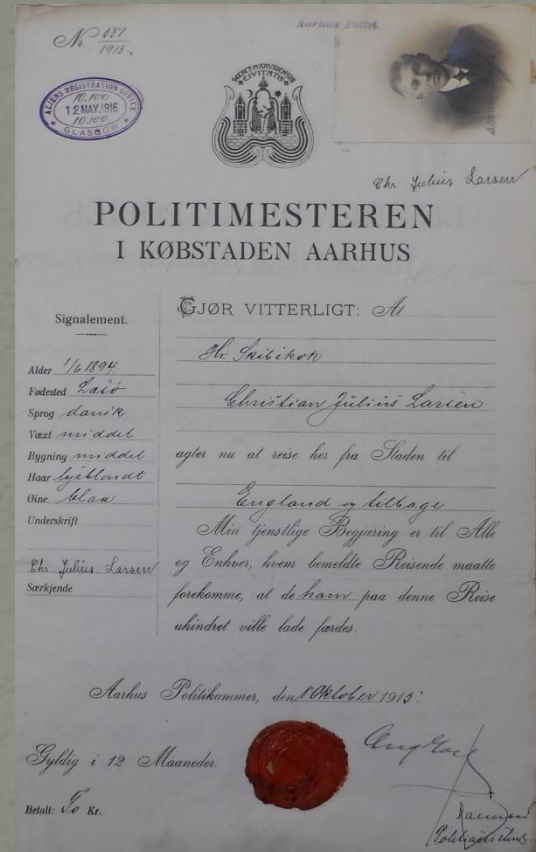 Aarhus Politi
Nr. 031
1915.
ALIENS REGISTRATION OFFICE
10.100
12 MAY.1916
10.100
GLASGOW
CIVITATIS
Chr Julius Larsen
POLITIMESTEREN
I KØBSTADEN AARHUS
Signalement.
Alder 1/6 1894
Fødested Læsø
Sprog dansk
Væxt middel
Bygning middel
Haar lysblondt
Øine blaa
Underskrift
Chr Julius Larsen
Særkjende
GJØR VITTERLIGT: At
Hr. Skibskok
Christian Julius Larsen
agter nu at reise her fra Staden til
England og tilbage
Min tjenstlige Begjæring er til Alle
og Enhver, hvem bemeldte Reisende maatte
forekomme, at de ham paa denne Reise
uhindret ville lade færdes.
Aarhus Politikammer, den 1 Oktober 1915.
Gyldig i 12 Maaneder.
Betalt: To Kr.